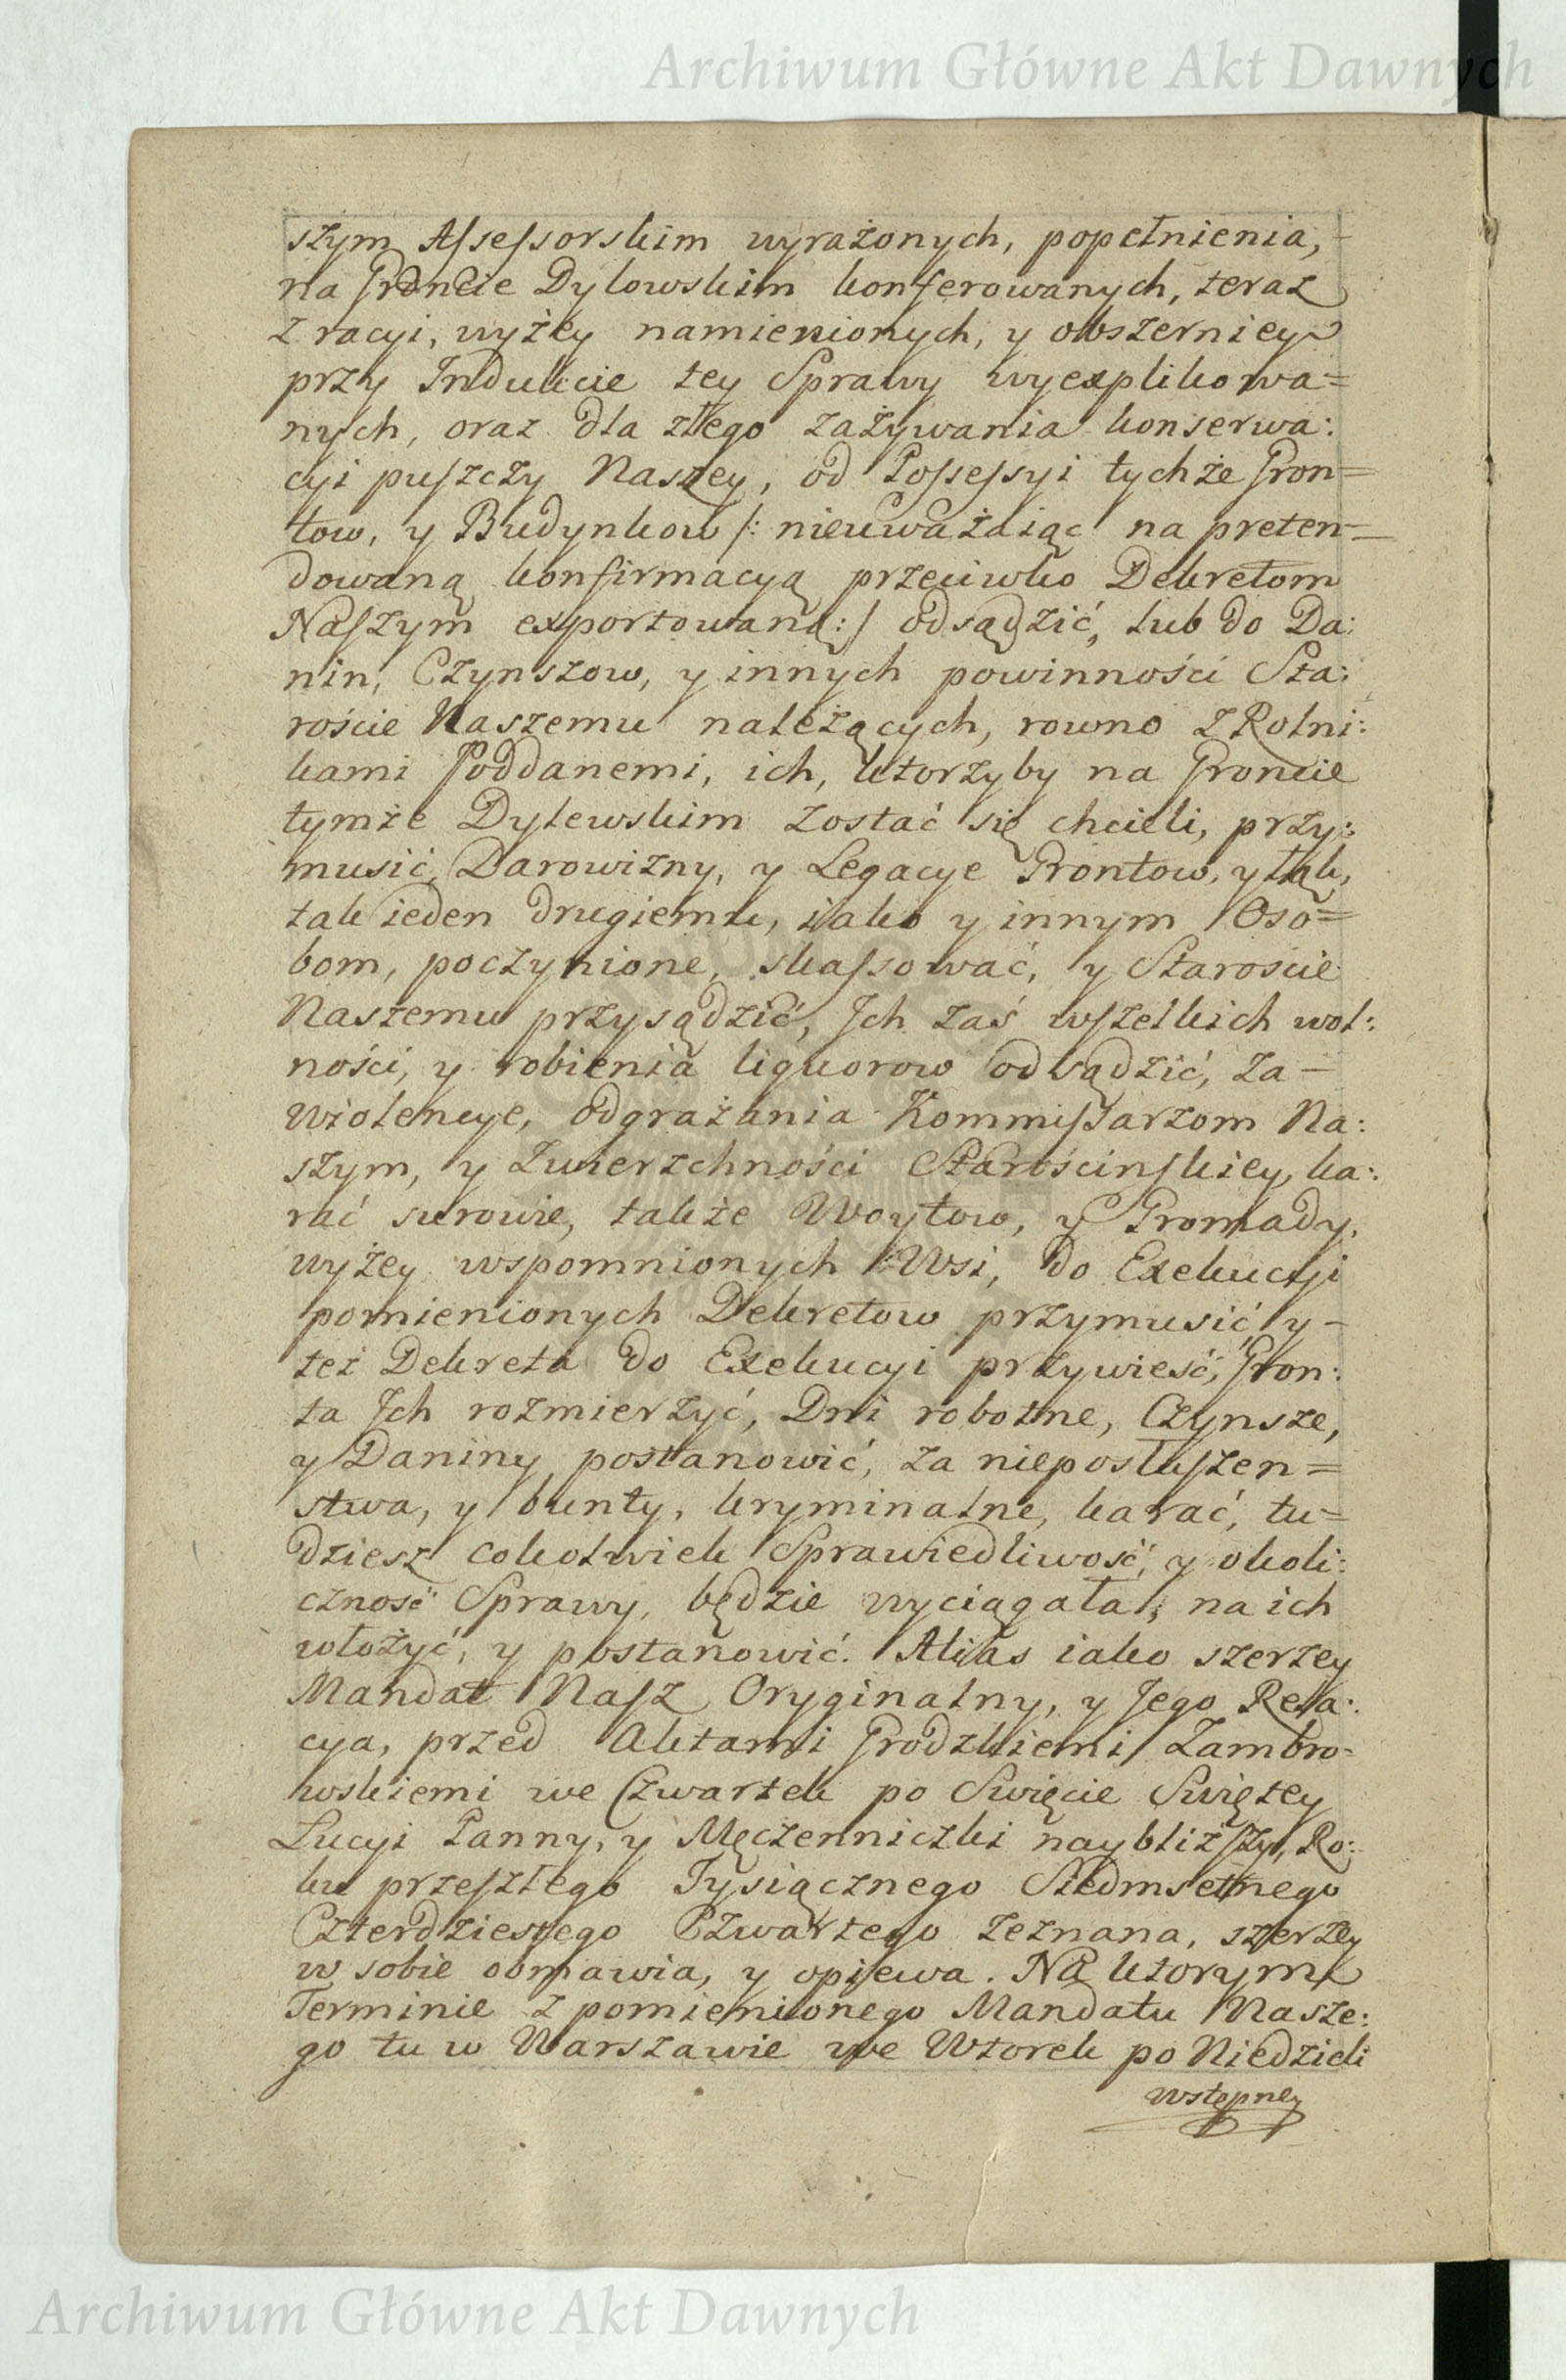 Archiwum Główne Akt Dawnych
szym Assessorskim wyrażonych, popełnienia,
na Groncie Dylowskim konferowanych, teraz
z racyi, wyżey namienionych, y obszerniey
przy Indukcie tey Sprawy wyexplikowa=
nych, oraz dla złego zażywania konserwa:
cyi puszczy Naszey, od Possessyi tychże Gron=
tow, y Budynkow /: nieuważaiąc na preten=
dowaną konfirmacyą przeciwko Dekretom
Naszym exportowaną :/ odsądzić, lub do Da:
nin, Czynszow, y innych powinności Sta:
roście Naszemu należących, rowno z Rolni:
kami Poddanemi, ich, ktorzyby na Groncie
tymże Dylewskim zostać się chcieli, przy:
musić, Darowizny, y Legacye Grontow, y Łąk,
tak ieden drugiemu, iako y innym Oso=
bom, poczynione, skassować, y Staroscie
Naszemu przysądzić, Jch zaś wszelkich wol:
ności, y robienia liquorow odsądzić, za-
wiolencye, odgrażania Kommissarzom Na:
szym, y Zwierzchności Starościnskiey, ka:
rać surowie, także Woytow, y Gromady,
wyżey wspomnionych Wsi, do Exekucyi
pomienionych Dekretow przymusić, y-
też Dekreta do Exekucyi przywieść, Gron:
ta Jch rozmierzyć, Dni robotne, Czynsze,
y Daniny postanowić, za nieposłuszen=
stwa, y bunty, kryminalne, karać, tu=
dziesz cokolwiek Sprawiedliwość, y okoli:
czność Sprawy, będzie wyciągała, na ich
włożyć, y postanowić. Alias iako szerzey
Mandat Nasz Oryginalny, y Jego Rela:
cya, przed Aktami Grodzkiemi Zambro-
wskiemi we Czwartek po Swięcie Swiętey
Lucyi Panny, y Męczenniczki naybliższy, Ro:
ku przeszłego Tysiącznego Siedmsetnego
Czterdziestego Czwartego zeznana, szerzey
w sobie obmawia, y opiewa. Na ktorym
Terminie z pomienionego Mandatu Nasze:
go tu w Warszawie we Wtorek po Niedzieli
wstępney
Archiwum Główne Akt Dawnych